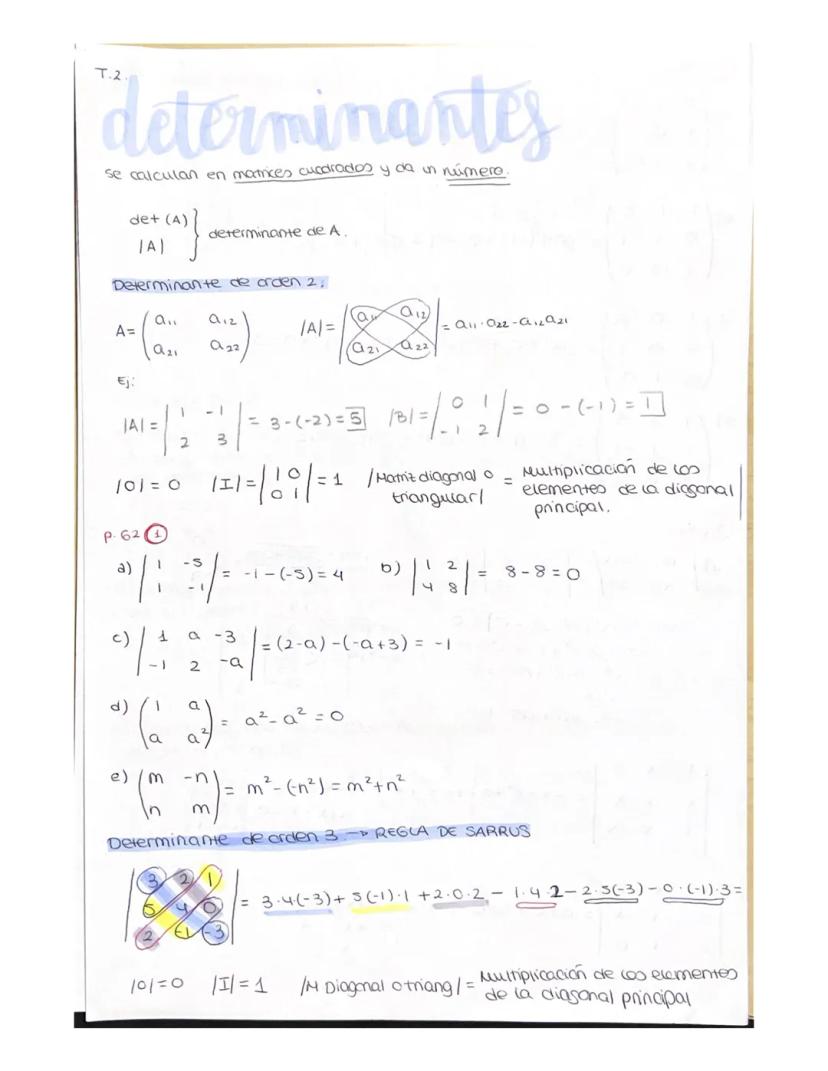 T.2.
determinantes
se calculan en matrices cuadrados y da un número.
det (A) } determinante de A.
|A|
Determinante de orden 2.
A = ( a11 a12 |A| = | a11 a12 | = a11·a22 - a12a21
a21 a22 ) a21 a22
Ej:
|A| = | 1 -1 | = 3-(-2) = 5 |B| = | 0 1 | = 0 - (-1) = 1
2 3 -1 2
|0| = 0 |I| = | 1 0 | = 1 |Matriz diagonal o = Multiplicación de los
0 1 triangular| elementos de la diagonal
principal.
p. 62 1
a) | 1 -5 | = -1-(-5) = 4 b) | 1 2 | = 8-8 = 0
1 -1 4 8
c) | 1 a -3 | = (2-a)-(-a+3) = -1
-1 2 -a
d) ( 1 a ) = a² - a² = 0
a a²
e) ( m -n ) = m² - (-n²) = m²+n²
n m
Determinante de orden 3 → REGLA DE SARRUS
| 3 2 1
5 4 0 | = 3·4(-3)+ 5(-1)·1 +2·0·2 - 1·4·2 - 2·5(-3) - 0·(-1)·3 =
2 -1 -3
|0| = 0 |I| = 1 |M Diagonal o triang| = Multiplicación de los elementos
de la diagonal principal